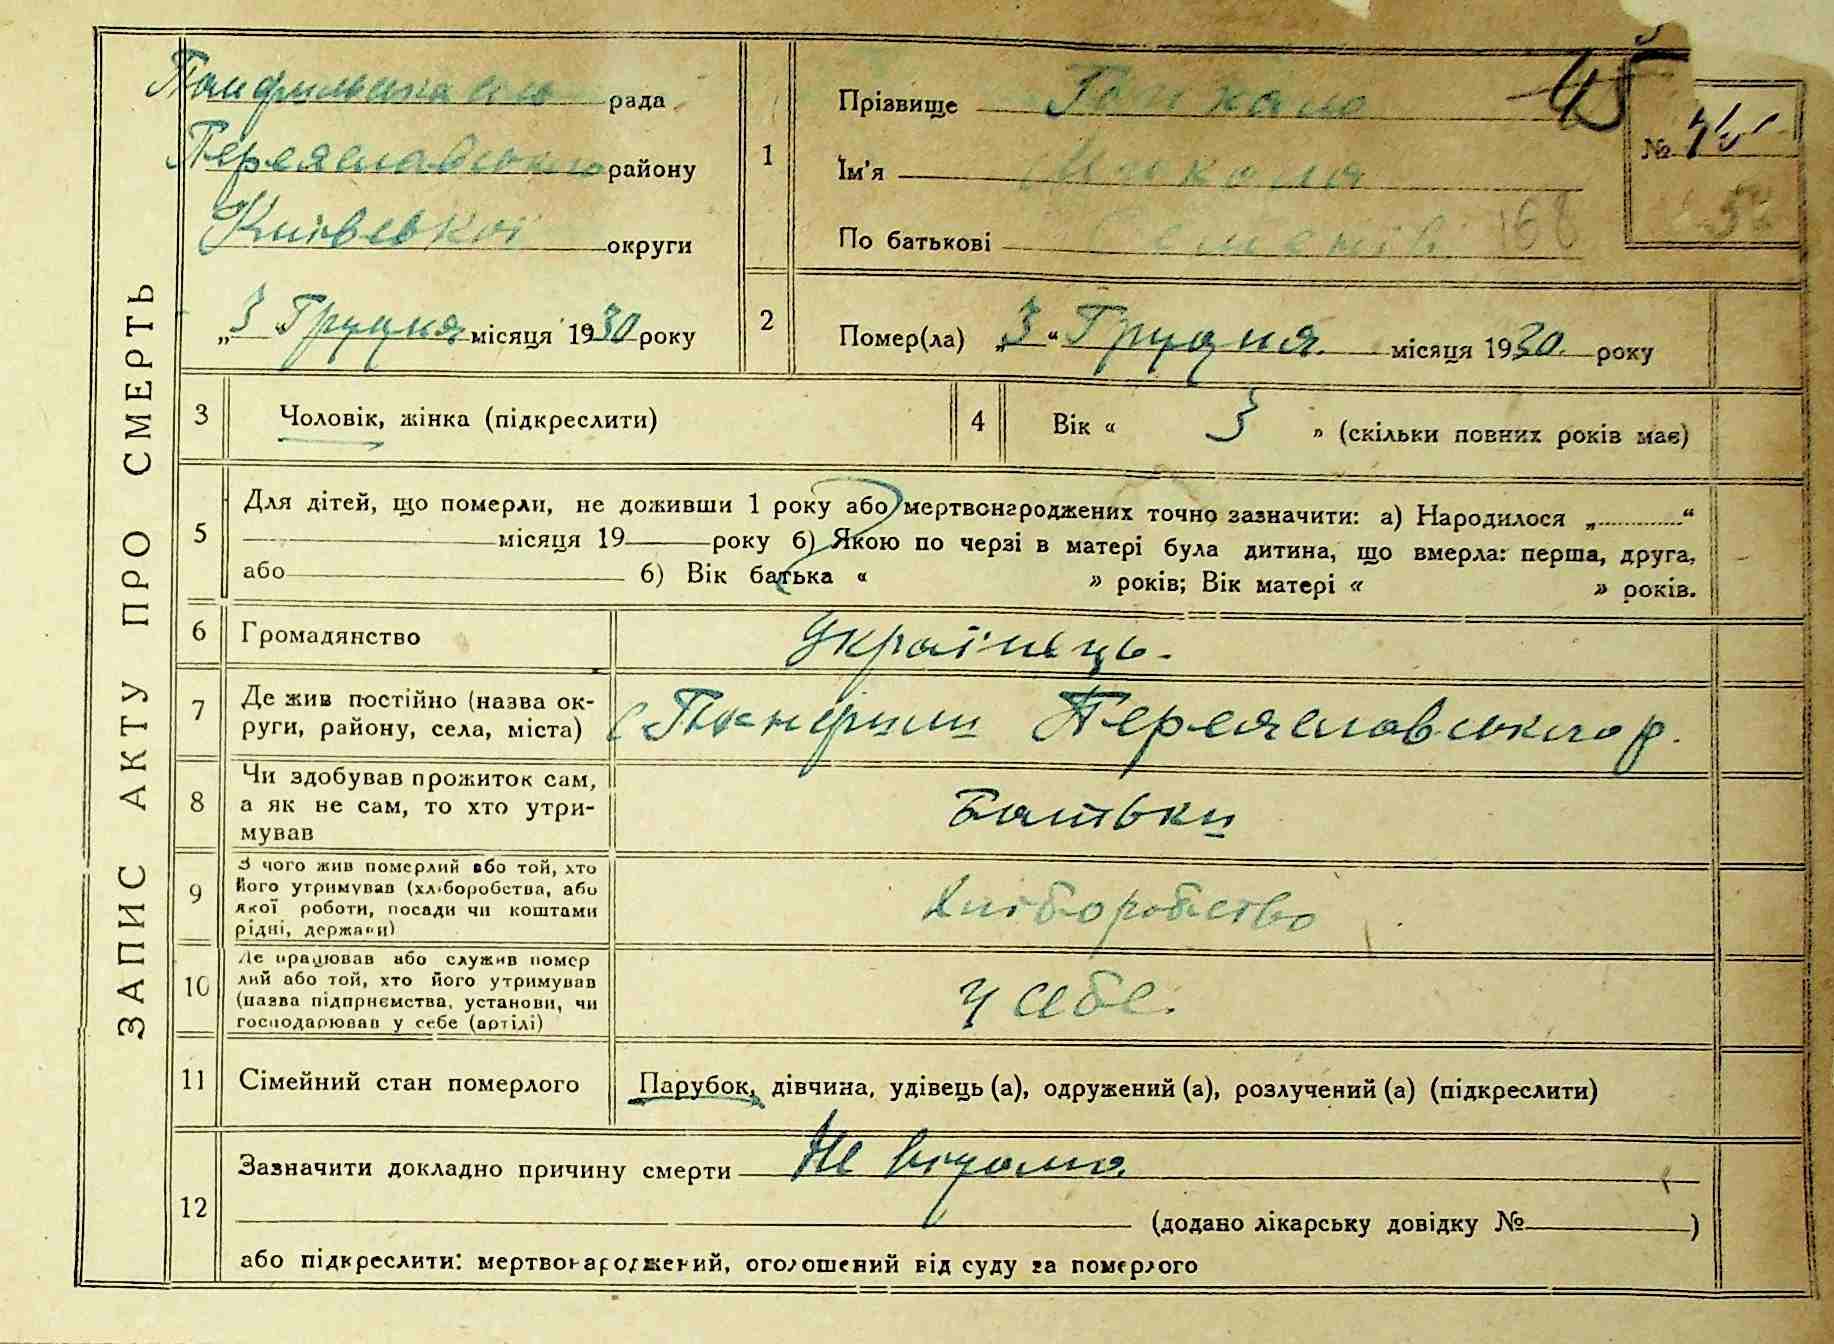 ЗАПИС АКТУ ПРО СМЕРТЬ
рада
Переяславського району
Київської округи
„3“ Грудня місяця 1930 року
1
Прізвище
Ім'я Микола
По батькові 158
45
№ 45
2
Помер(ла) „3“ Грудня місяця 1930. року
3
Чоловік, жінка (підкреслити)
4
Вік « 3 » (скільки повних років має)
5
Для дітей, що померли, не доживши 1 року або мертвонароджених точно зазначити: а) Народилося „............“
місяця 19 року б) Якою по черзі в матері була дитина, що вмерла: перша, друга,
або б) Вік батька « » років; Вік матері « » років.
6
Громадянство
Українець.
7
Де жив постійно (назва ок-
руги, району, села, міста)
с Переяславського р.
8
Чи здобував прожиток сам,
а як не сам, то хто утри-
мував
Батьки
9
З чого жив померлий або той, хто
його утримував (хліборобства, або
якої роботи, посади чи коштами
рідні, держави)
Хліборобство
10
Де працював або служив помер
лий або той, хто його утримував
(назва підприємства, установи, чи
господарював у себе (артілі)
у себе.
11
Сімейний стан померлого
Парубок, дівчина, удівець (а), одружений (а), розлучений (а) (підкреслити)
12
Зазначити докладно причину смерти Не відома
(додано лікарську довідку № )
або підкреслити: мертвонароджений, оголошений від суду за померлого